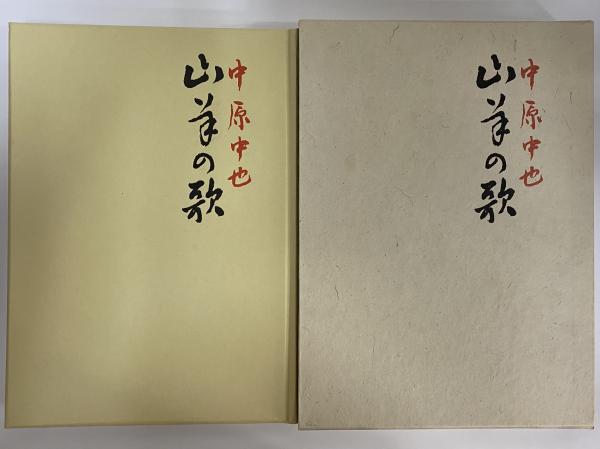 中原中也
山羊の歌
中原中也
山羊の歌